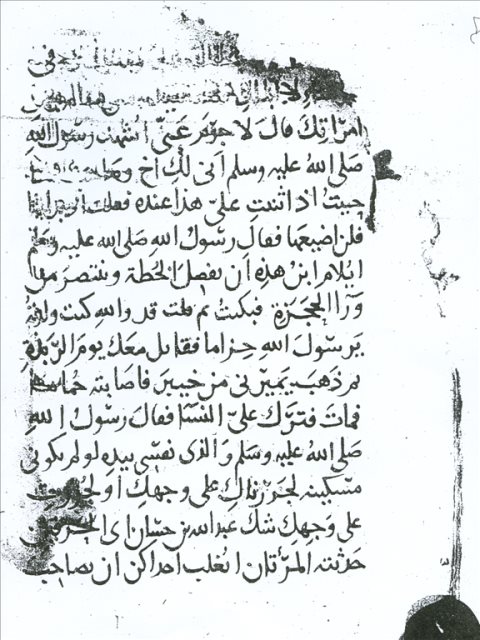 امراتك قال لا جرم عني اشهد رسول الله
صلى الله عليه وسلم انى لك اخ
حييت اذ اثنيت على هذا عنده فقلت
فلن اضيعها فقال رسول الله صلى الله عليه وسلم
ايلام ابن هذه ان يفصل الخطة وينتصر من
ورا الحجزة فبكيت ثم قلت قد والله كنت ولدته
يرسول الله حزاما فقاتل معك يوم الربذة
ثم ذهب يميرني من خيبر فاصابته حماها
فمات فترك علىّ النسا فقال رسول الله
صلى الله عليه وسلم والذى نفسى بيده لو لم تكونى
مسكينة لجررناك على وجهك او لجررت
على وجهك شك عبد الله بن حسان اى الحرفين
حدثته المرتان ايغلب احداكن ان يصاحب